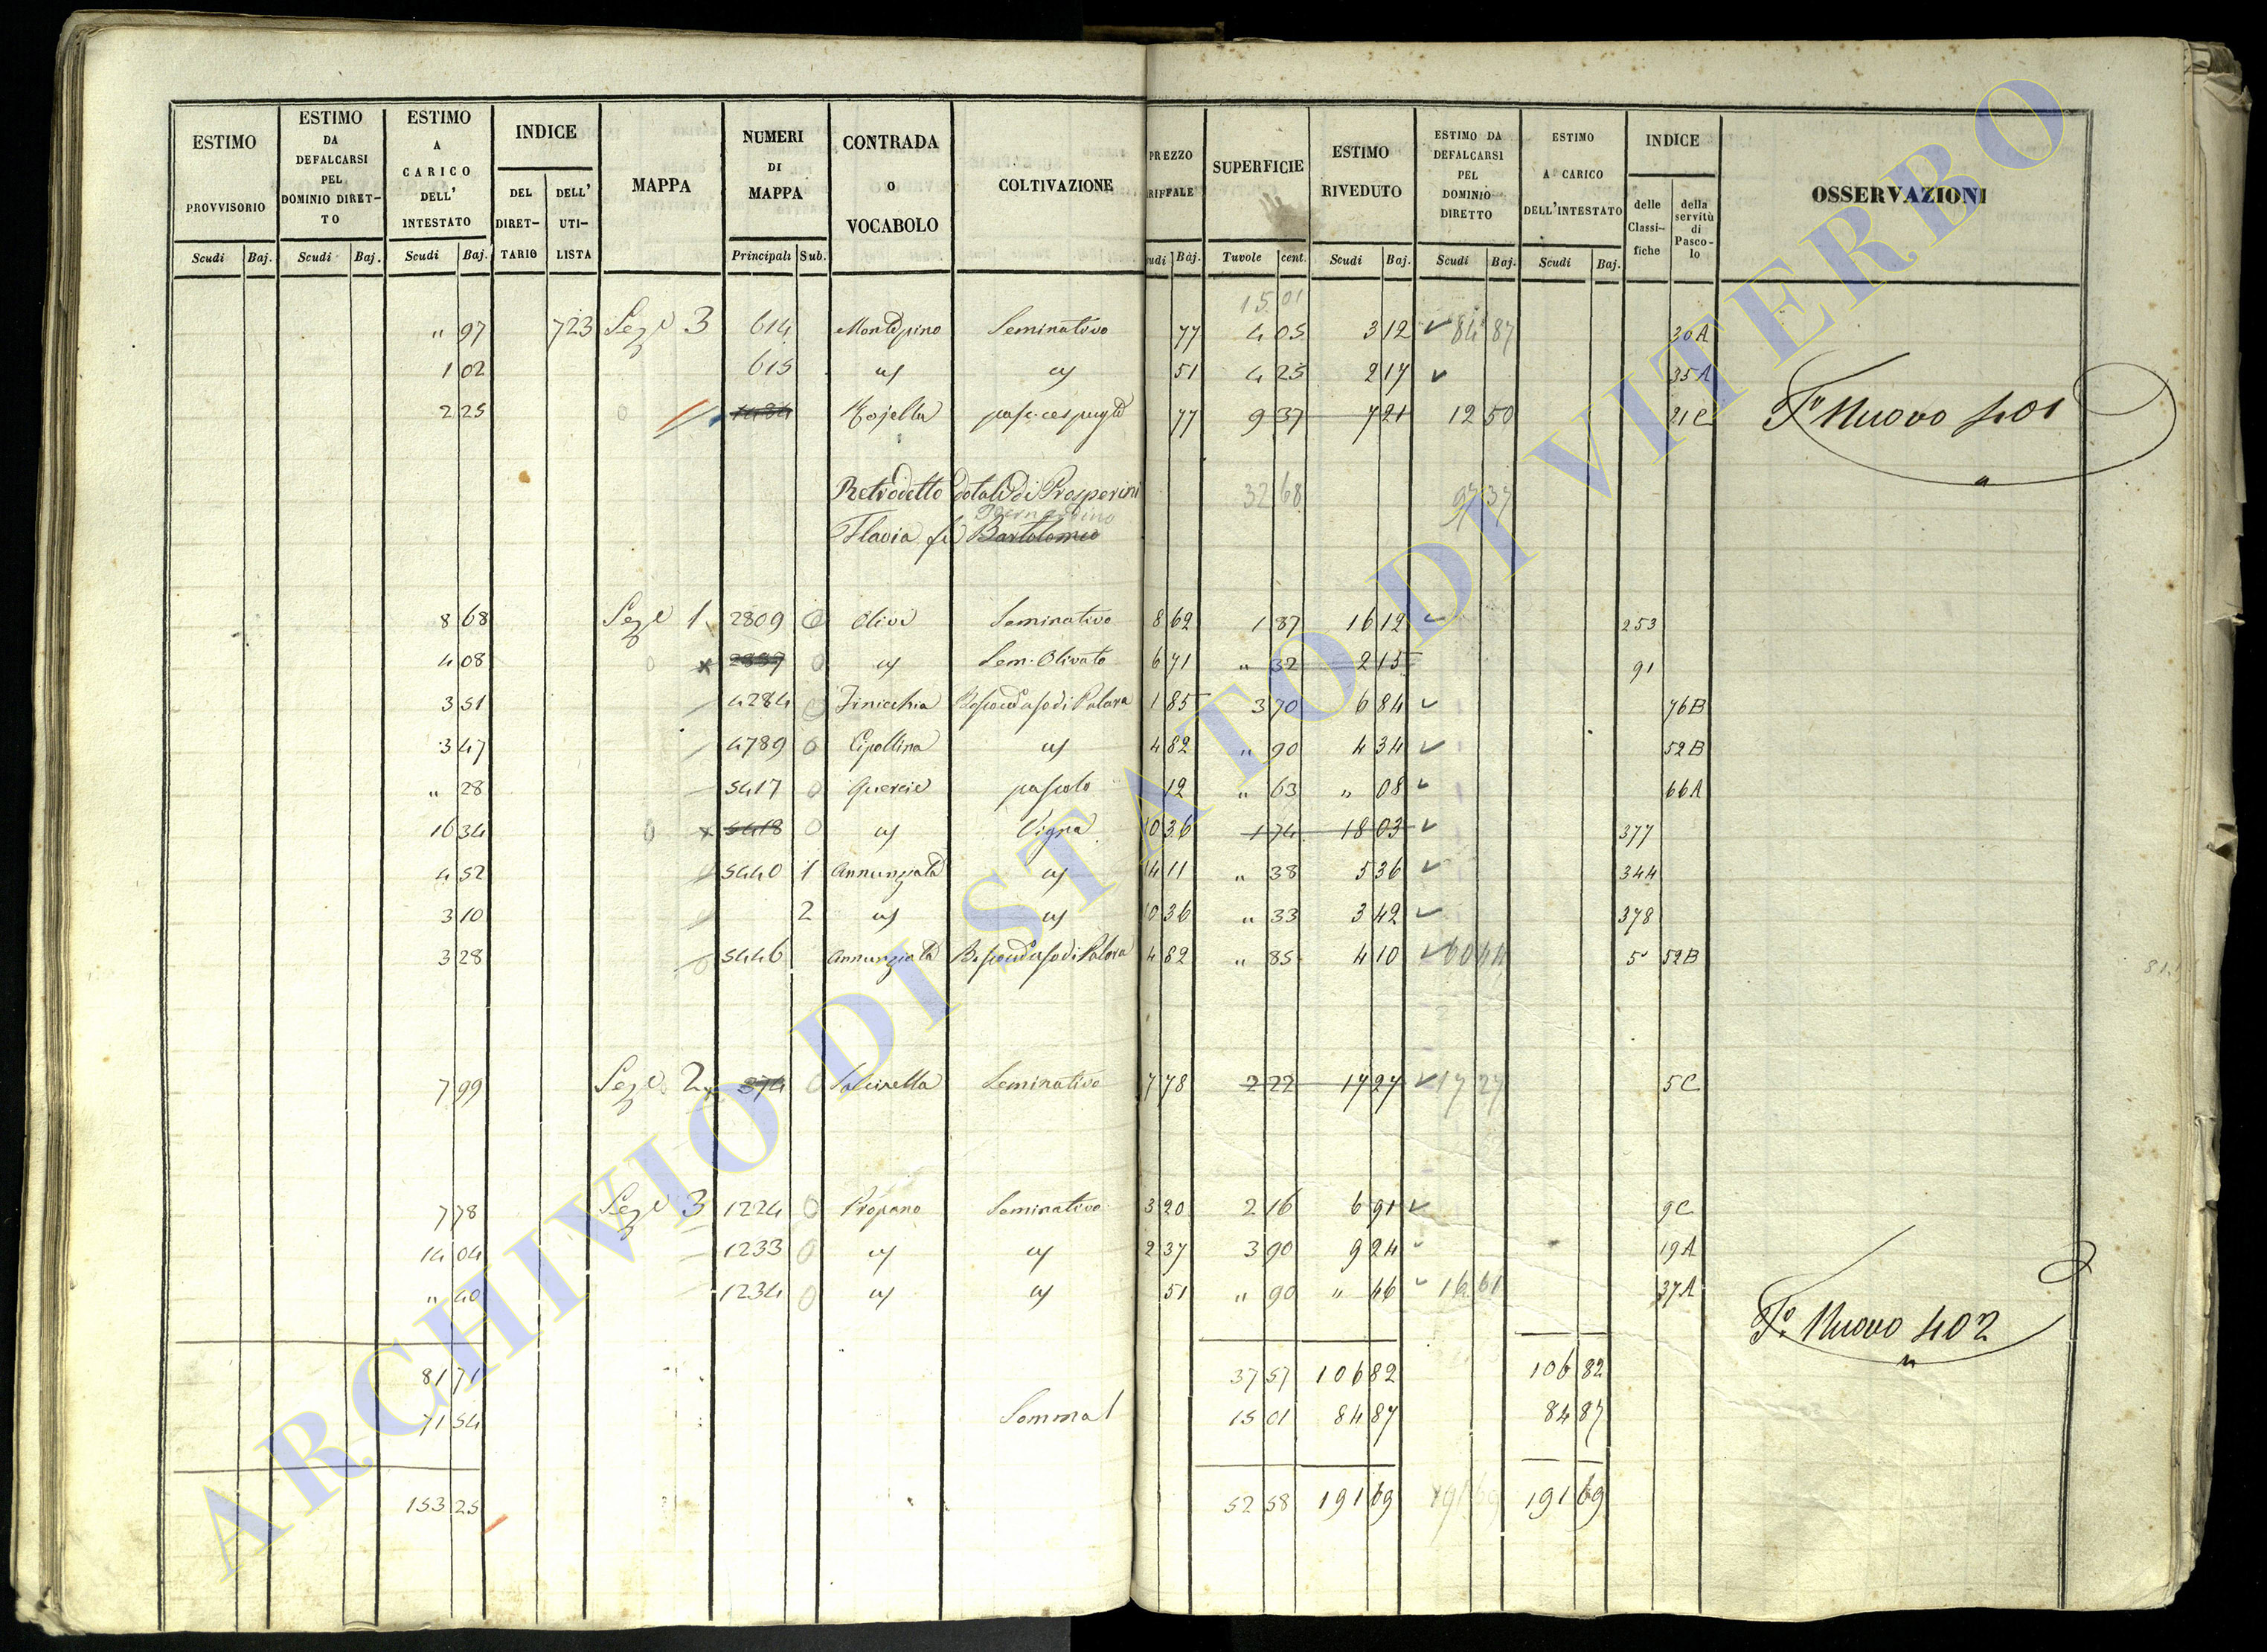 ESTIMO PROVVISORIO Scudi Baj.
ESTIMO DA DEFALCARSI PEL DOMINIO DIRETTO Scudi Baj.
ESTIMO A CARICO DELL' INTESTATO Scudi Baj.
INDICE DEL DIRETTARIO DELL' UTILISTA
MAPPA
NUMERI DI MAPPA Principali Sub.
CONTRADA O VOCABOLO
COLTIVAZIONE
PREZZO RIFFALE udi Baj.
SUPERFICIE Tavole cent.
ESTIMO RIVEDUTO Scudi Baj.
ESTIMO DA DEFALCARSI PEL DOMINIO DIRETTO Scudi Baj.
ESTIMO A CARICO DELL'INTESTATO Scudi Baj.
INDICE delle Classifiche della servitù di Pascolo
OSSERVAZIONI
15 01
" 97 723 Seze 3 614 Seminativo 77 4 05 3 12 84 87 30A
1 02 615 51 4 25 2 17 35A
2 25 77 9 37 7 21 12 50 21C
F° Nuovo 401
Retrodetto dotale di Prosperini 32 68 97 37
Bernardino
Flavia fu Bartolomeo
8 68 Seze 1 2809 0 Olivi Seminativo 8 62 1 87 16 12 253
4 08 0 Sem. Olivato 6 71 " 32 2 15 91
3 51 4284 0 Finicchia 1 85 3 70 6 84 76B
3 47 4789 0 Cipollina 4 82 " 90 4 34 52B
" 28 5417 0 Quercie pascolo 12 " 63 " 08 66A
16 34 0 5418 0 Vigna 10 36 1 74 18 03 377
4 52 5440 1 Annunziata 14 11 " 38 5 36 344
3 10 2 10 36 " 33 3 42 378
3 28 5446 Annunziata 4 82 " 85 4 10 60 44 5 52B
7 99 Seze 2 374 0 Seminativo 7 78 2 22 17 27 17 27 5C
7 78 Seze 3 1224 0 Propano Seminativo 3 20 2 16 6 91 9C
14 04 1233 0 2 37 3 90 9 24 19A
" 40 1234 0 51 " 90 " 46 16 61 37A
F° Nuovo 402
81 71 37 57 106 82 106 82
71 54 Somma 15 01 84 87 84 87
153 25 52 58 191 69 191 69 191 69
ARCHIVIO DI STATO DI VITERBO